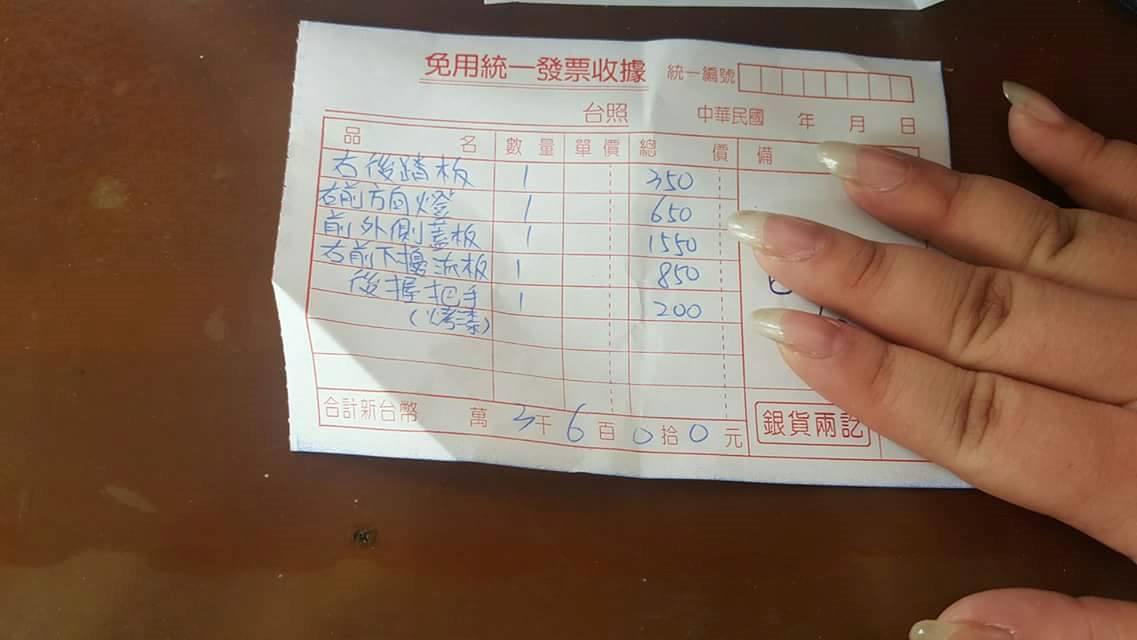 免用統一發票收據 統一編號
台照 中華民國 年 月 日
品 名 數量 單價 總 價 備
右後踏板 1 350
右前方向燈 1 650
前外側蓋板 1 1550
右前下擾流板 1 850
後握把手 1 200
(烤漆)
合計新台幣 萬 3千 6百 0拾 0元 銀貨兩訖